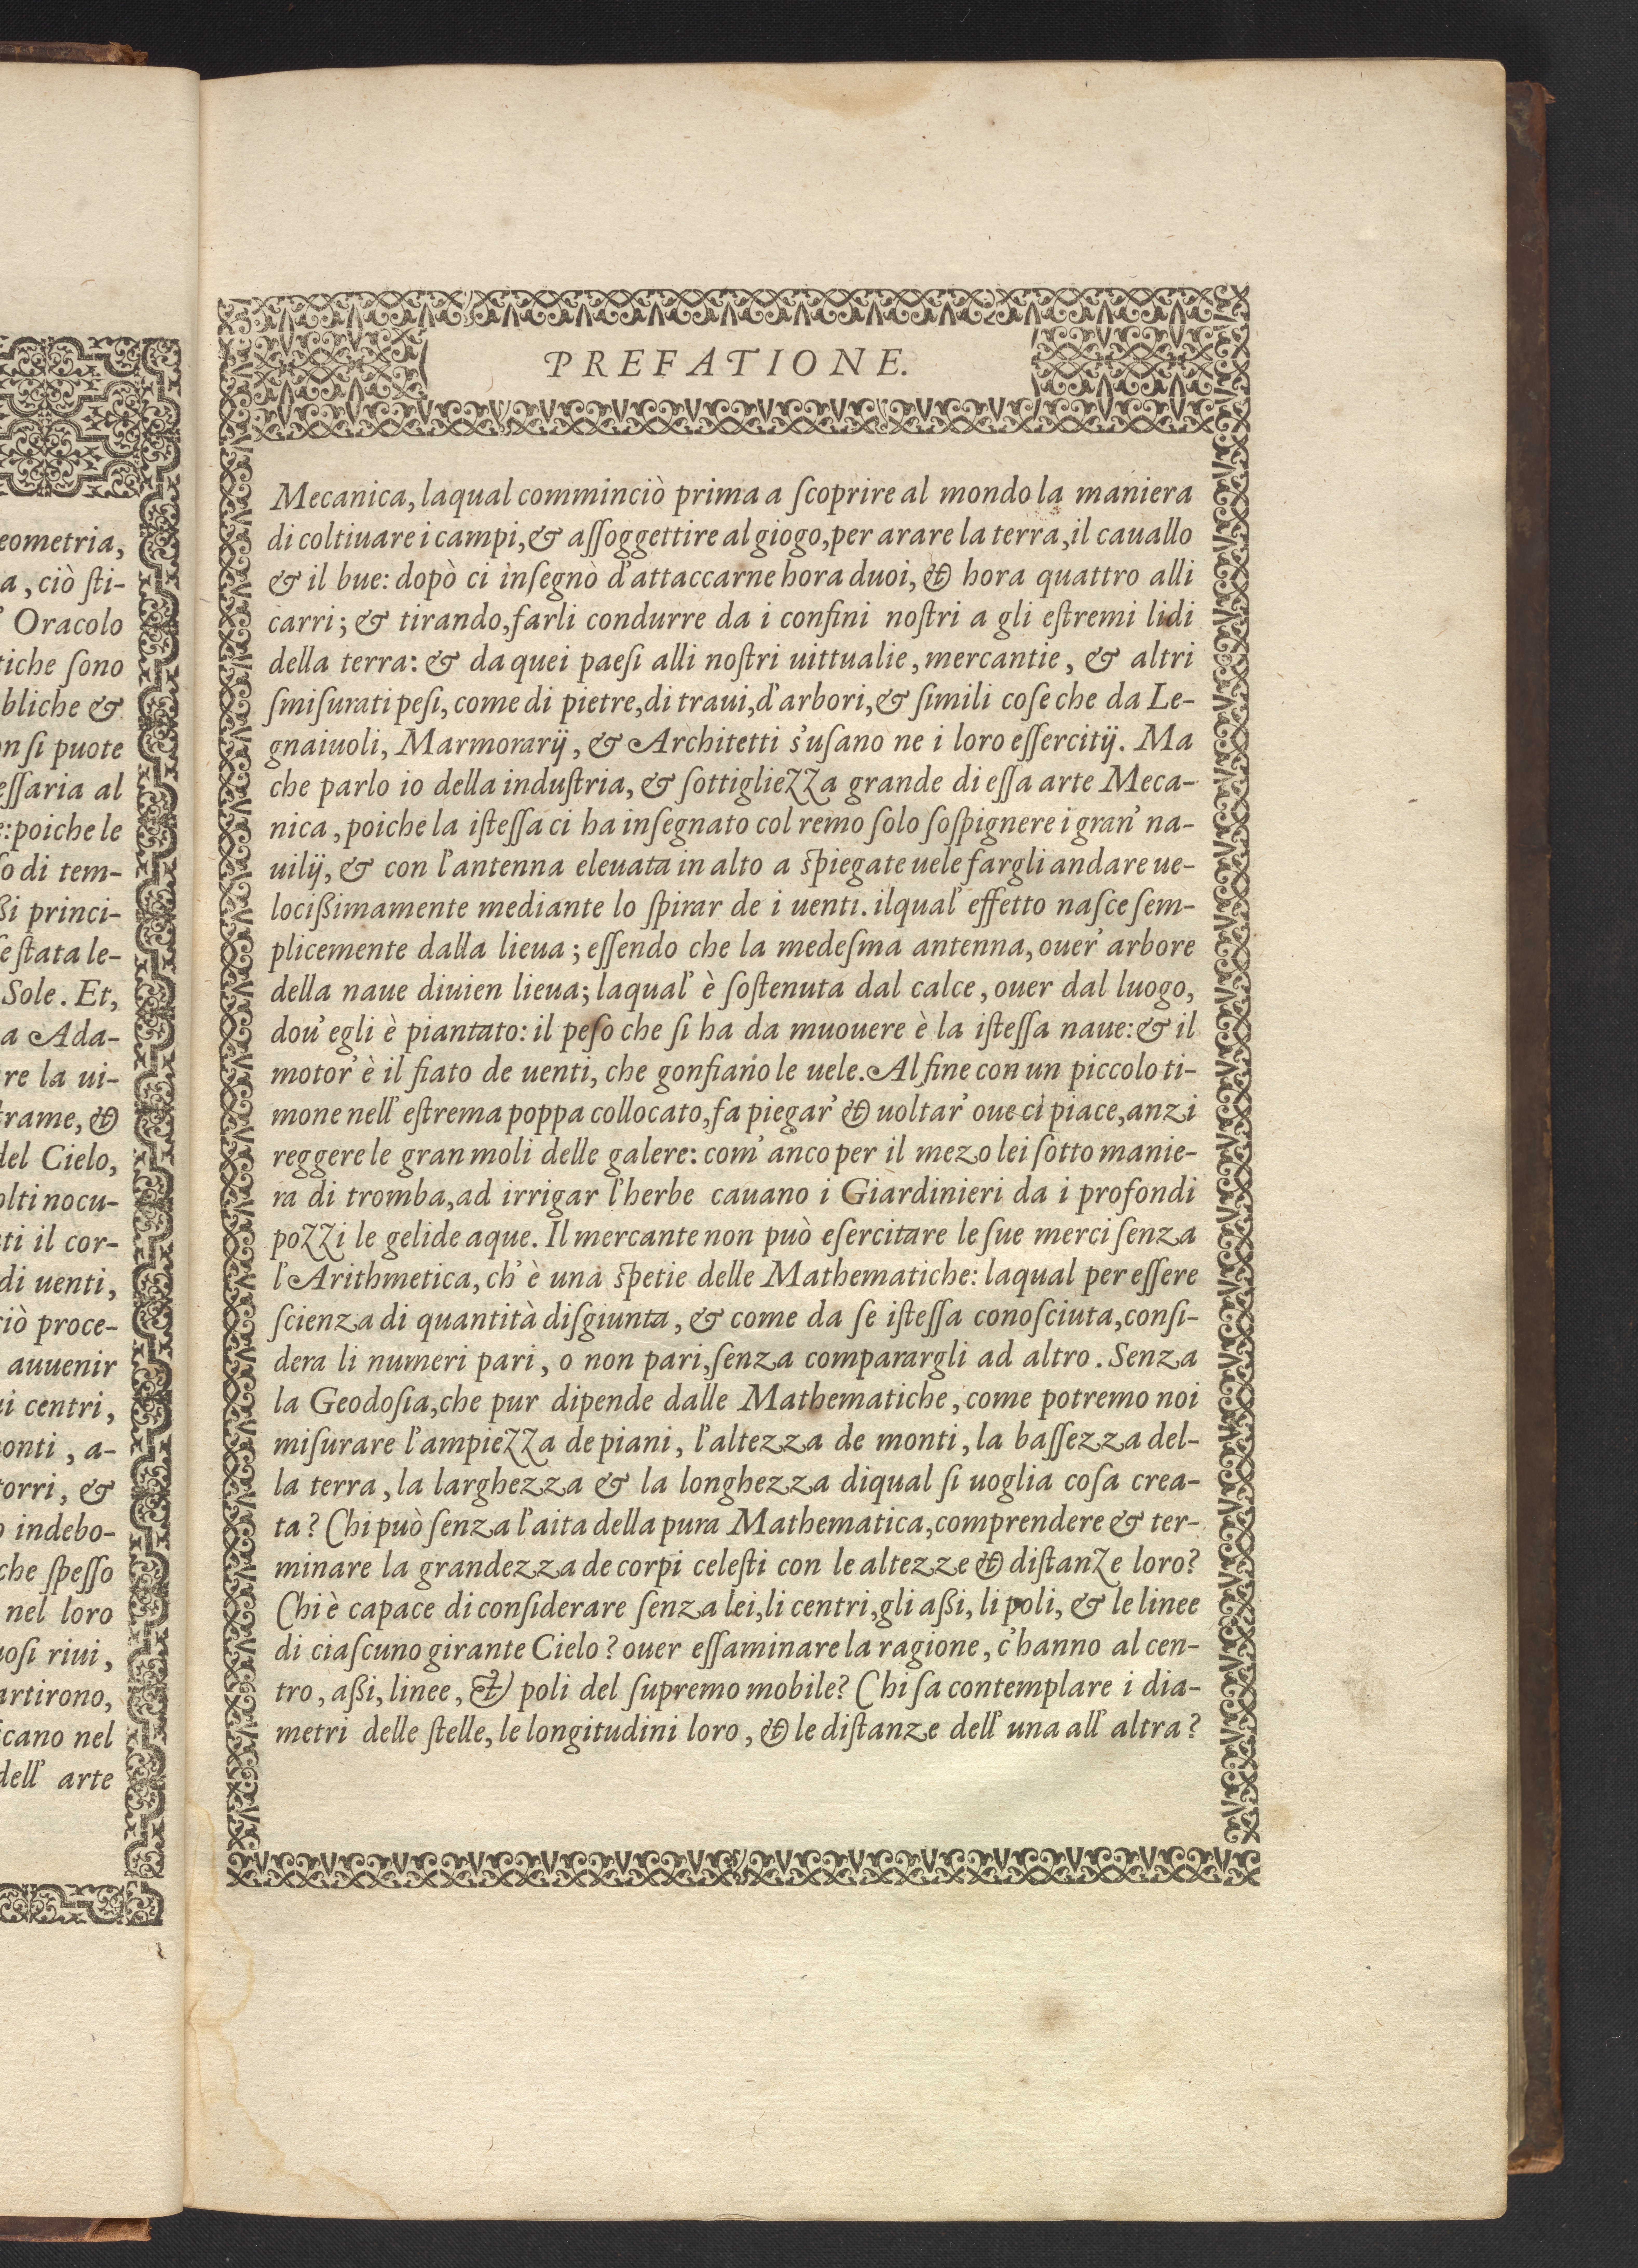 eometria,
a, ciò ſti-
Oracolo
tiche ſono
bliche &
on ſi puote
eſſaria al
e: poiche le
ſo di tem-
ßi princi-
ſe ſtata le-
Sole. Et,
a Ada-
re la ui-
trame, &
del Cielo,
olti nocu-
ti il cor-
di uenti,
ciò proce-
auuenir
ui centri,
onti, a-
torri, &
o indebo-
che ſpeſſo
nel loro
uoſi riui,
artirono,
icano nel
dell' arte
PREFATIONE.
Mecanica, laqual comminciò prima a ſcoprire al mondo la maniera
di coltiuare i campi, & aſſoggettire al giogo, per arare la terra, il cauallo
& il bue: dopò ci inſegnò d'attaccarne hora duoi, & hora quattro alli
carri; & tirando, farli condurre da i confini noſtri a gli eſtremi lidi
della terra: & da quei paeſi alli noſtri uittualie, mercantie, & altri
ſmiſurati peſi, come di pietre, di traui, d'arbori, & ſimili coſe che da Le-
gnaiuoli, Marmorarij, & Architetti s'uſano ne i loro eſſercitij. Ma
che parlo io della induſtria, & ſottigliezza grande di eſſa arte Meca-
nica, poiche la iſteſſa ci ha inſegnato col remo ſolo ſoſpignere i gran' na-
uilij, & con l'antenna eleuata in alto a ſpiegate uele fargli andare ue-
locißimamente mediante lo ſpirar de i uenti. ilqual' effetto naſce ſem-
plicemente dalla lieua; eſſendo che la medeſma antenna, ouer' arbore
della naue diuien lieua; laqual' è ſoſtenuta dal calce, ouer dal luogo,
dou' egli è piantato: il peſo che ſi ha da muouere è la iſteſſa naue: & il
motor' è il fiato de uenti, che gonfiano le uele. Al fine con un piccolo ti-
mone nell' eſtrema poppa collocato, fa piegar' & uoltar' oue ci piace, anzi
reggere le gran moli delle galere: com' anco per il mezo lei ſotto manie-
ra di tromba, ad irrigar l'herbe cauano i Giardinieri da i profondi
pozzi le gelide aque. Il mercante non può eſercitare le ſue merci ſenza
l'Arithmetica, ch' è una ſpetie delle Mathematiche: laqual per eſſere
ſcienza di quantità diſgiunta, & come da ſe iſteſſa conoſciuta, conſi-
dera li numeri pari, o non pari, ſenza comparargli ad altro. Senza
la Geodoſia, che pur dipende dalle Mathematiche, come potremo noi
miſurare l'ampiezza de piani, l'altezza de monti, la baſſezza del-
la terra, la larghezza & la longhezza diqual ſi uoglia coſa crea-
ta? Chi può ſenza l'aita della pura Mathematica, comprendere & ter-
minare la grandezza de corpi celeſti con le altezze & diſtanze loro?
Chi è capace di conſiderare ſenza lei, li centri, gli aßi, li poli, & le linee
di ciaſcuno girante Cielo? ouer eſſaminare la ragione, c'hanno al cen-
tro, aßi, linee, & poli del ſupremo mobile? Chi ſa contemplare i dia-
metri delle ſtelle, le longitudini loro, & le diſtanze dell' una all' altra?